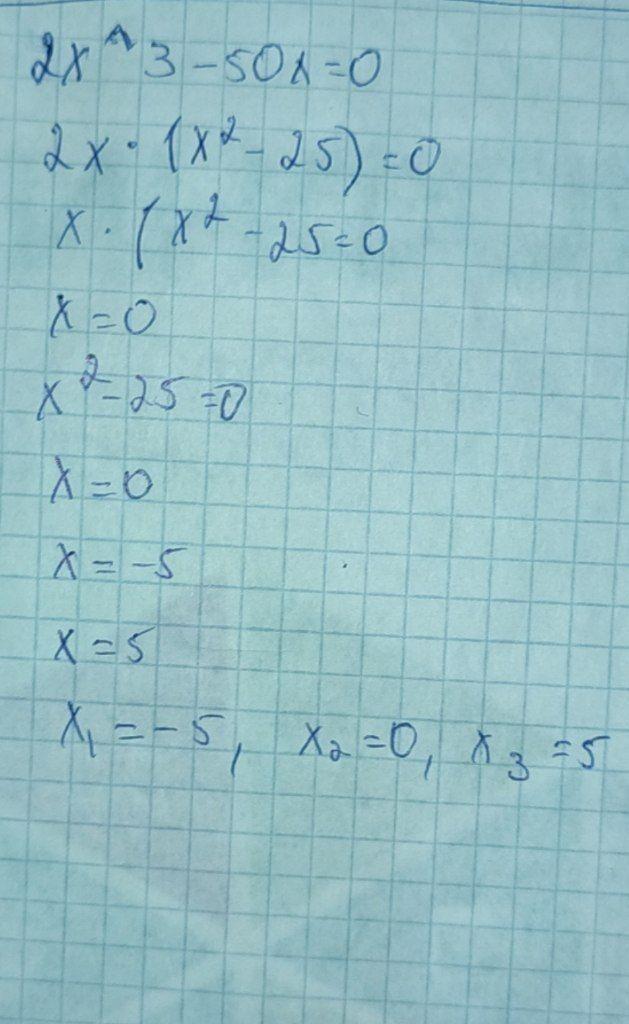 2x^3-50x=0
2x·(x²-25)=0
x·(x²-25=0
x=0
x²-25=0
x=0
x=-5
x=5
x₁=-5, x₂=0, x₃=5